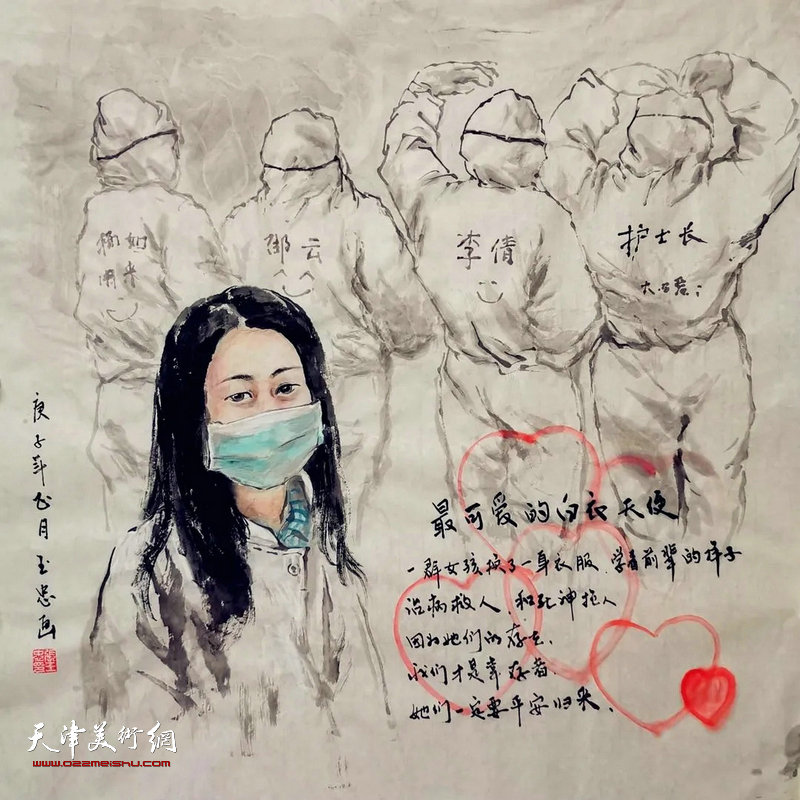 邵云
李倩
护士长
最可爱的白衣天使
一群女孩换了一身衣服、学着前辈的样子
治病救人、和死神抢人
因为她们的存在、
我们才是幸存者
她们一定要平安归来、
庚子年正月玉忠画
天津美術網
www.022meishu.com